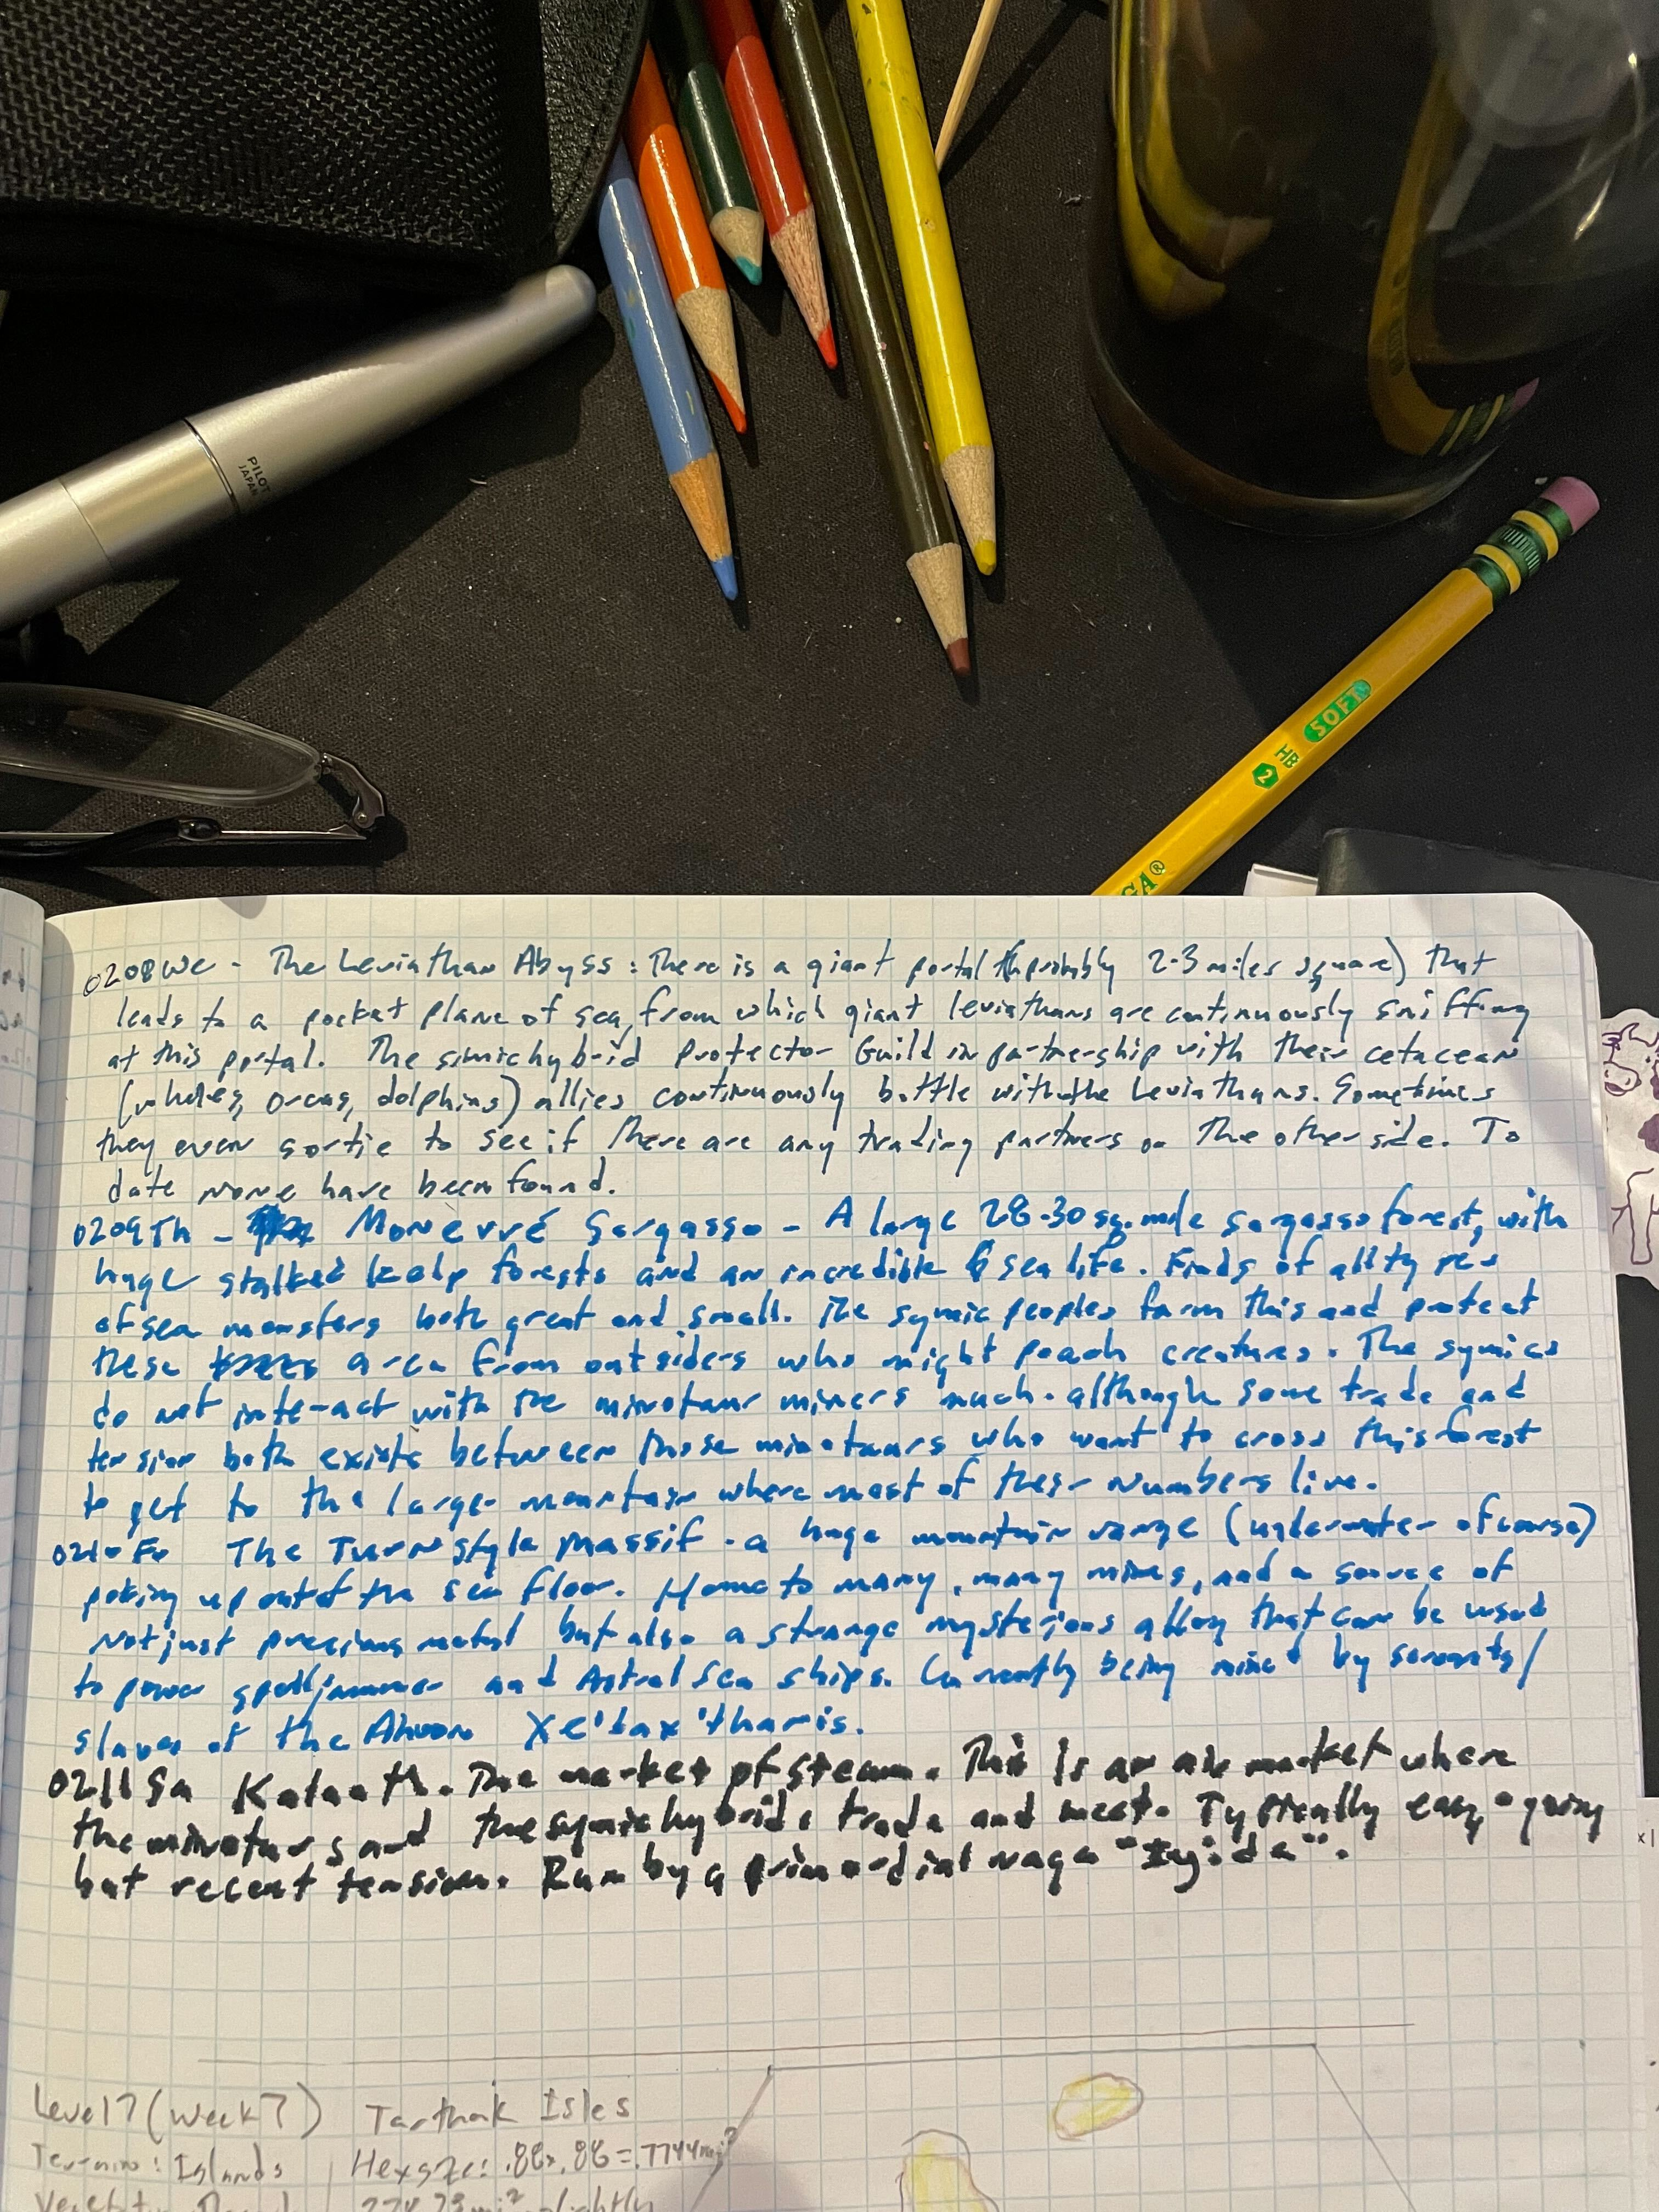 PILOT
JAPAN
SOFT
HB
2
GA®
0208We - The Leviathan Abyss: There is a giant portal (probably 2-3 miles square) that
leads to a pocket plane of sea, from which giant leviathans are continuously sniffing
at this portal. The simic hybrid Protector Guild in partnership with their cetacean
(whales, orcas, dolphins) allies continuously battle with the Leviathans. Sometimes
they even sortie to see if there are any trading partners on the other side. To
date none have been found.
0209Th - Monevré Sargasso - A large 28-30 sq. mile sargasso forest, with
huge stalked kelp forests and an incredible sea life. Finds of all types
of sea monsters both great and small. The symic peoples farm this and protect
these area from outsiders who might poach creatures. The symics
do not interact with the minotaur miners much - although some trade and
tension both exists between those minotaurs who want to cross this forest
to get to the large mountain where most of their numbers live.
0210Fr The Turnstyle Massif - a huge mountain range (underwater of course)
poking up out of the sea floor. Home to many, many mines, and a source of
not just precious metal but also a strange mysterious alloy that can be used
to power spelljammer and Astral Sea ships. Currently being mined by servants/
slaves of the Xe'tax'tharis.
0211Sa Kalaath. The market of steam. This is an air market where
the minotaurs and the symic hybrids trade and meet. Typically easy-going
but recent tension. Run by a primordial naga
Level 7 (Week 7) Tarthak Isles
Terrain: Islands Hex size: .88x.88=.7744mi²
mi² slightly